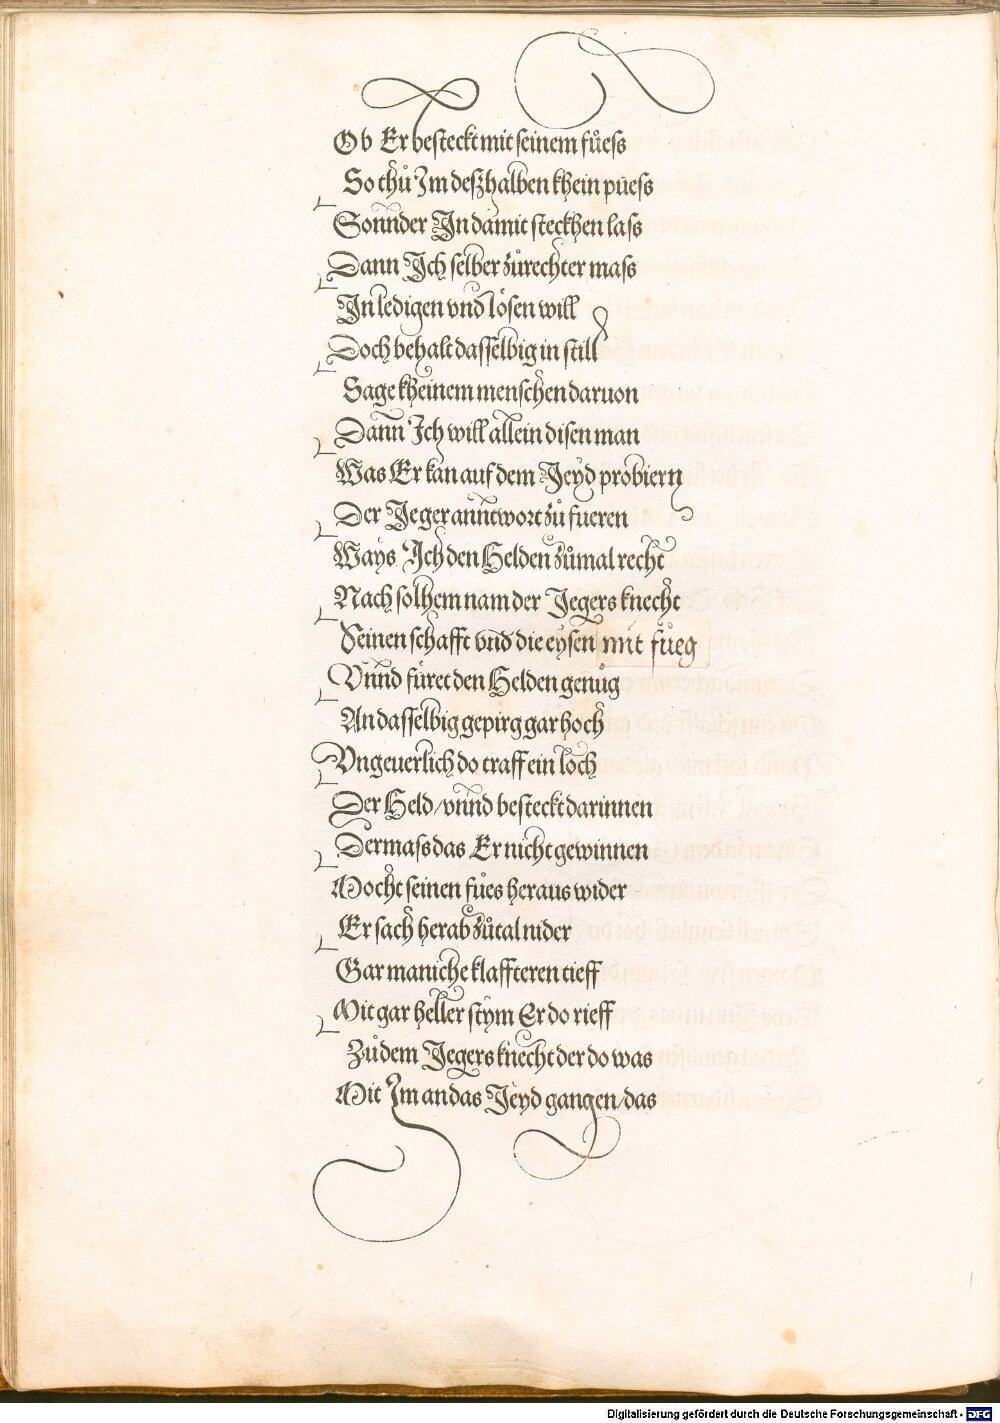 Ob Er besteckt mit seinem fůess
So thů Im deßhalben khein půess
Sonnder In damit steckhen lass
Dann Ich selber zůrechter mass
In ledigen vnd lösen will
Doch behalt dasselbig in still
Sage kheinem menschen daruon
Dann Ich will allein disen man
Was Er kan auf dem Jeyd probiern
Der Jeger anntwort zů fueren
Ways Ich den Helden zůmal recht
Nach solhem nam der Jegersknecht
Seinen schafft vnd die eysen mit fůeg
Vnnd füret den Helden genůg
An dasselbig gepirg gar hoch
Vngeuerlich do traff ein loch
Der Held/vnnd besteckt darinnen
Dermass das Er nicht gewinnen
Mocht seinen fůes heraus wider
Er sach herab zůtal nider
Gar maniche klaffteren tieff
Mit gar heller stym Er do rieff
Zů dem Jegersknecht der do was
Mit Im an das Jeyd gangen/das
Digitalisierung gefördert durch die Deutsche Forschungsgemeinschaft - DFG